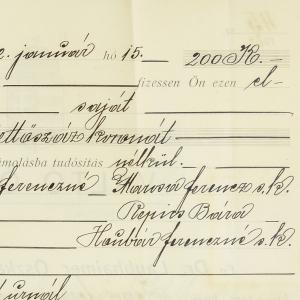 2. január hó 15. 200 K.
fizessen Ön ezen el-
saját
ettőszáz koronát
ámolásba tudósítás nélkül.
ferenczné Marosa ferencz s.k.
Repics Bára
Haubár ferenczné s.k.